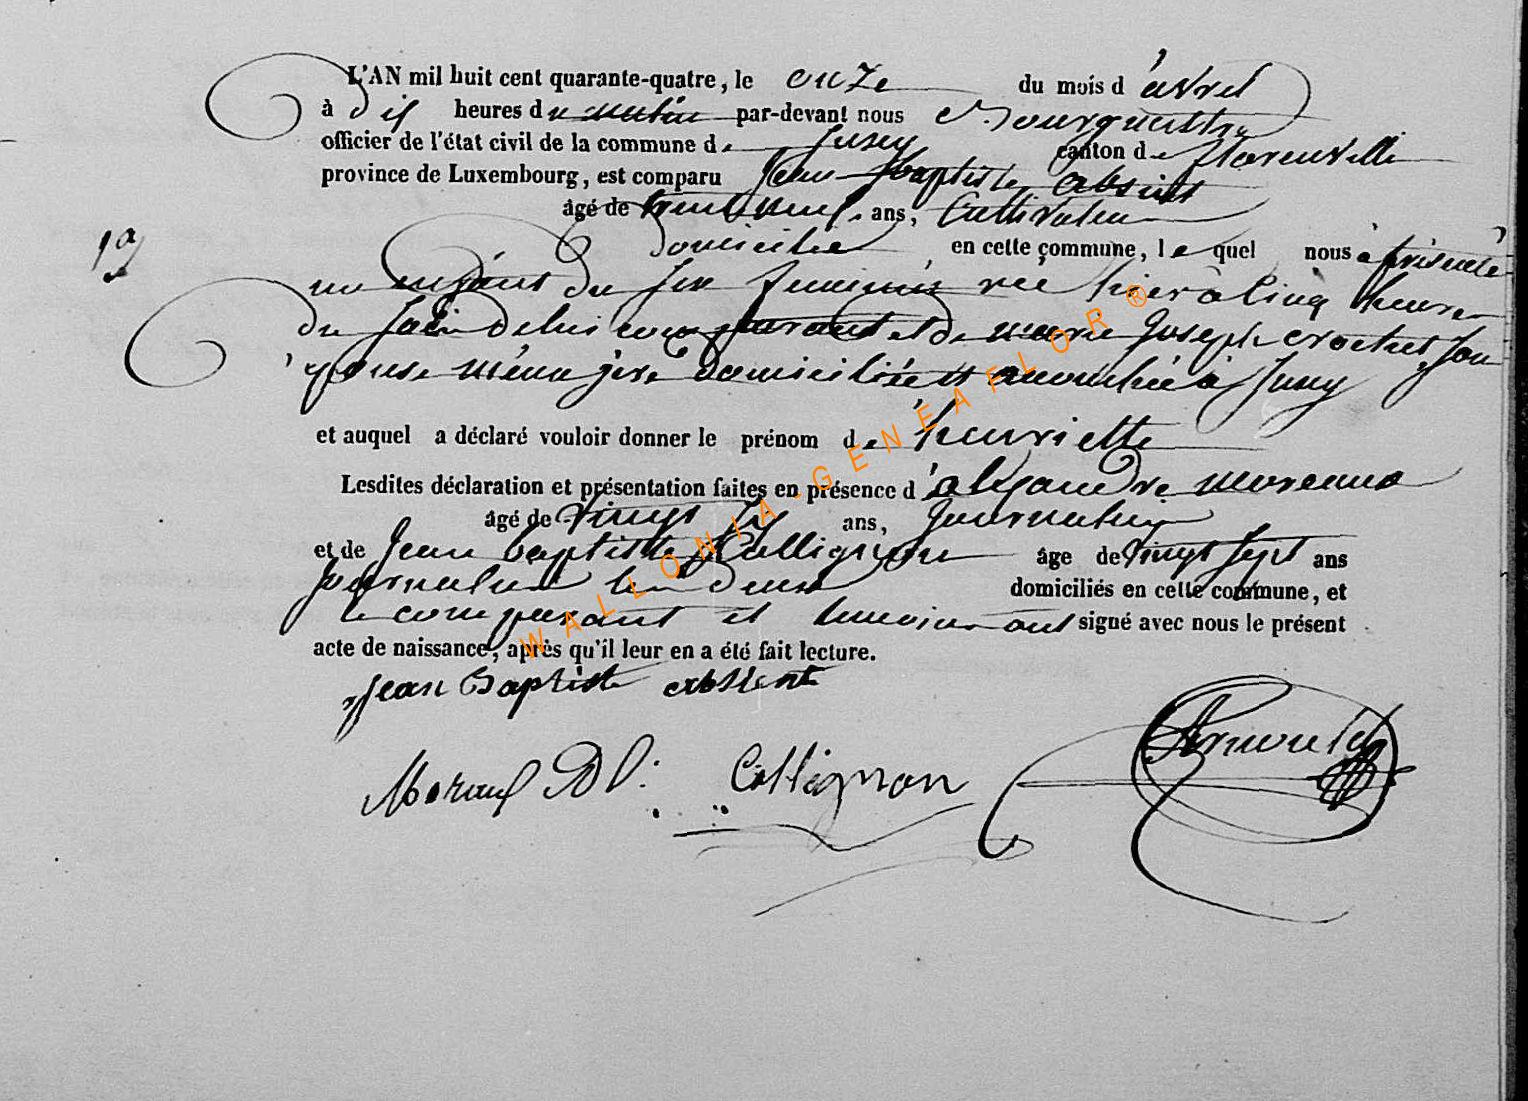 L'AN mil huit cent quarante-quatre, le onze du mois d'avril
à dix heures du matin par-devant nous Bourgmestre
officier de l'état civil de la commune de Izel canton de florenville
province de Luxembourg, est comparu Jean Baptiste absent
âgé de trente neuf ans, Cultivateur
19 domicilié en cette commune, lequel nous a présenté
un enfant du sex feminin née hier à Cinq heures
du soir de lui comparant et de marie Joseph crochet son
épouse ménagère domiciliée et accouchée à
et auquel a déclaré vouloir donner le prénom de henriette
Lesdites déclaration et présentation faites en présence d'alexandre moreaux
âgé de vingt six ans, Journalier
et de Jean baptiste Collignon âge de vingt sept ans
journalier tous deux domiciliés en cette commune, et
le comparant et temoins ont signé avec nous le présent
acte de naissance, après qu'il leur en a été fait lecture.
Jean Baptiste absent
Collignon
Arnould
WALLONIA-GENEAFLOR®